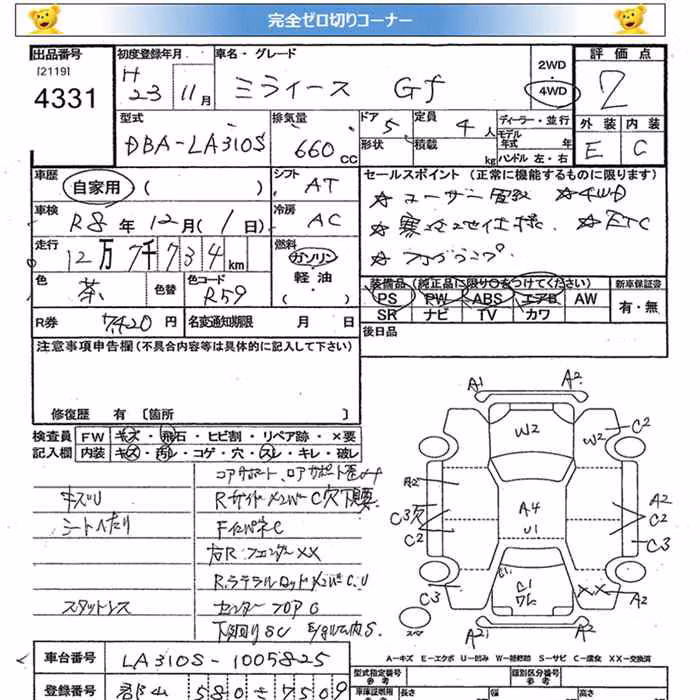 完全ゼロ切りコーナー
出品番号 [2119] 4331
初度登録年月 H 23 11月
車名・グレード ミライース Gf
2WD 4WD
評価点 2
外装 内装
E C
型式 DBA-LA310S
排気量 660 CC
ドア 5 定員 4人
形状 積載 kg
ディーラー・並行
モデル年式 年
ハンドル 左・右
車歴 自家用 ( )
シフト AT
車検 R8年12月(1日)
冷房 AC
走行 12万7千734km
燃料 ガソリン 軽油 ( )
色 茶 色替 色コード R59
R券 7420円 名変通知期限 月 日
セールスポイント (正常に機能するものに限ります)
☆ユーザー買取 ☆4WD
☆寒冷地仕様 ☆ETC
☆フォグランプ
装備品(純正品に限り○をつけてください)
新車保証書 有・無
PS PW ABS エアB AW
SR ナビ TV カワ
後日品
注意事項申告欄(不具合内容等は具体的に記入して下さい)
修復歴 有 [箇所 ]
検査員記入欄
FW キズ・飛石・ヒビ割・リペア跡・×要
内装 キズ・汚レ・コゲ・穴・スレ・キレ・破レ
コアサポート、ロアサポート歪サ
キズU Rサイドメンバー C穴下腐
シートヘたり Fインパネ C
右Rフェンダー XX
RラテラルロッドメンバーC、U
スタットレス センターフロアC
下廻りSC
A1 A2
W2 W2 C2
A2 A4 U1 A2 C2
C3穴 C2 C3
C3 C1 XX A2
スペア
A2 A2
A-キズ E-エクボ U-凹み W-補修跡 S-サビ C-腐食 XX-交換済
車台番号 LA310S-1005825
登録番号 郡山 580 さ 7509
型式指定番号 類別区分番号
車庫証明用参考 長さ 幅 高さ